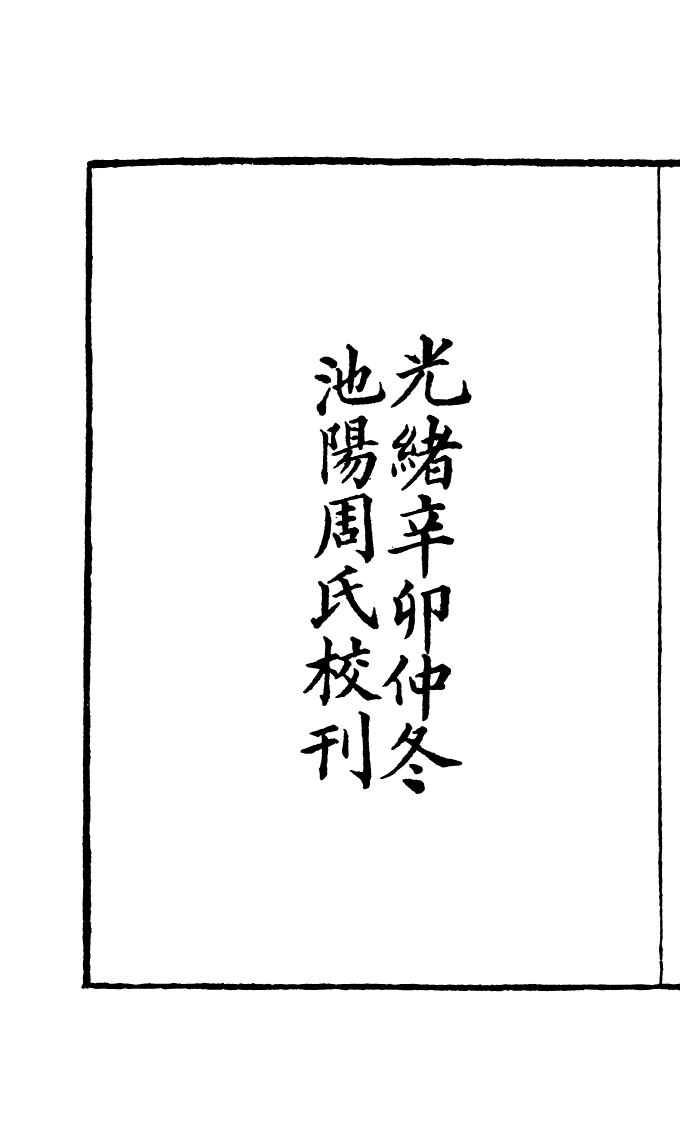 光緒辛卯仲冬
池陽周氏校刊